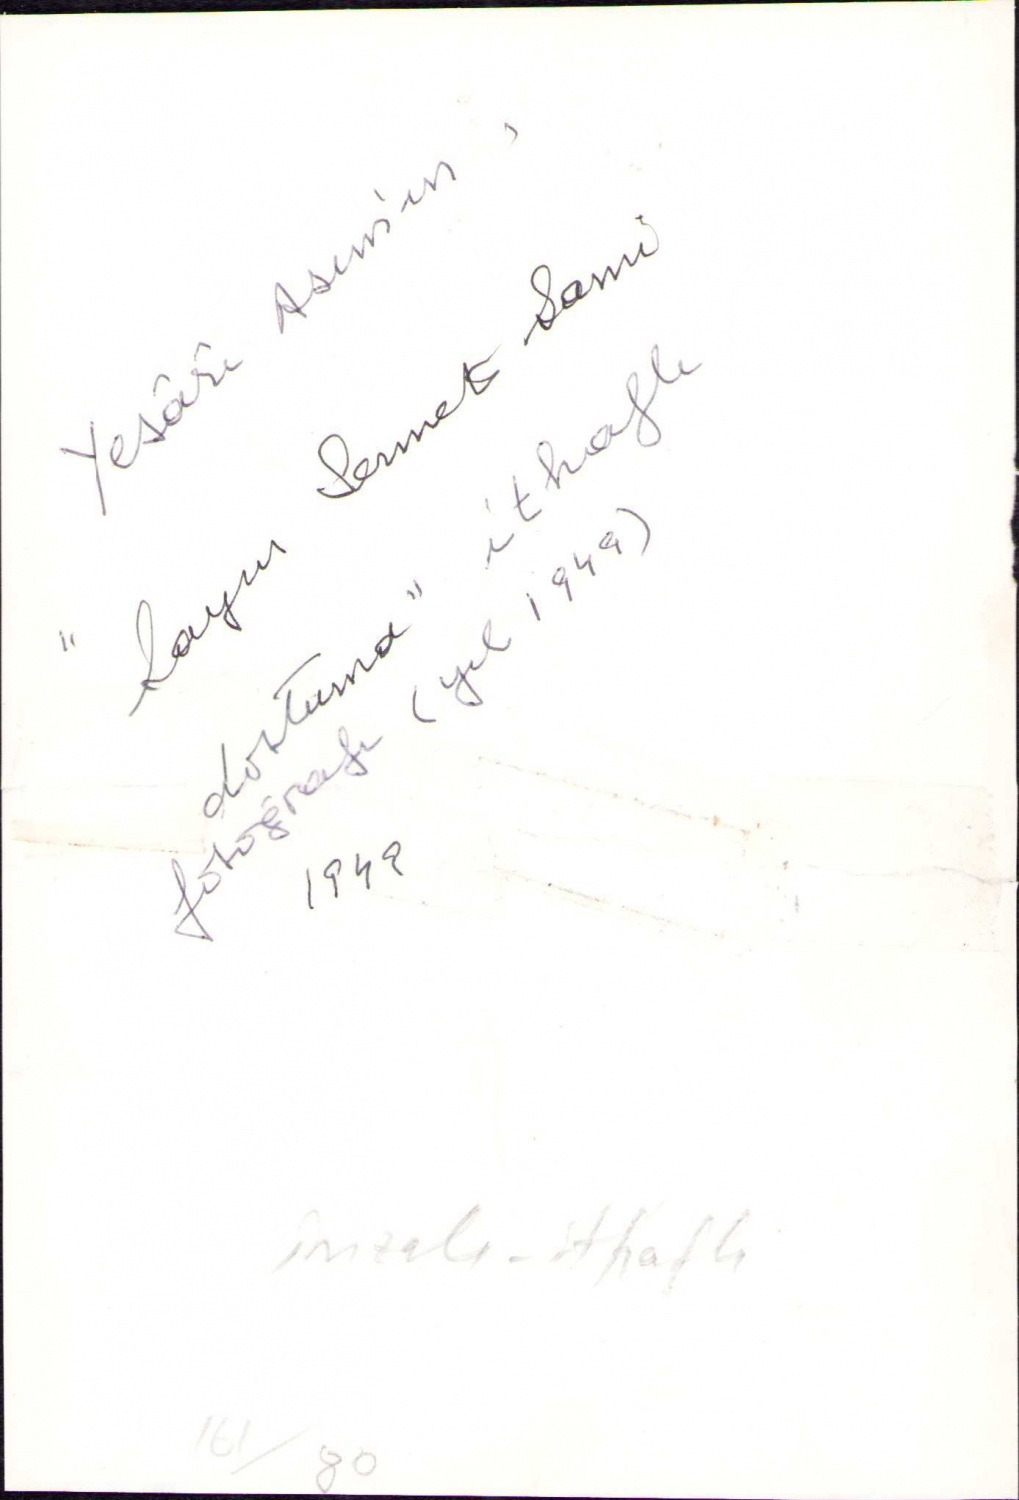 Yesâri Asım'ın,
"Sayın Sermet Sami
dostuma" ithaflı
fotoğrafı (yıl 1949)
1949
imzalı - ithaflı
161/80